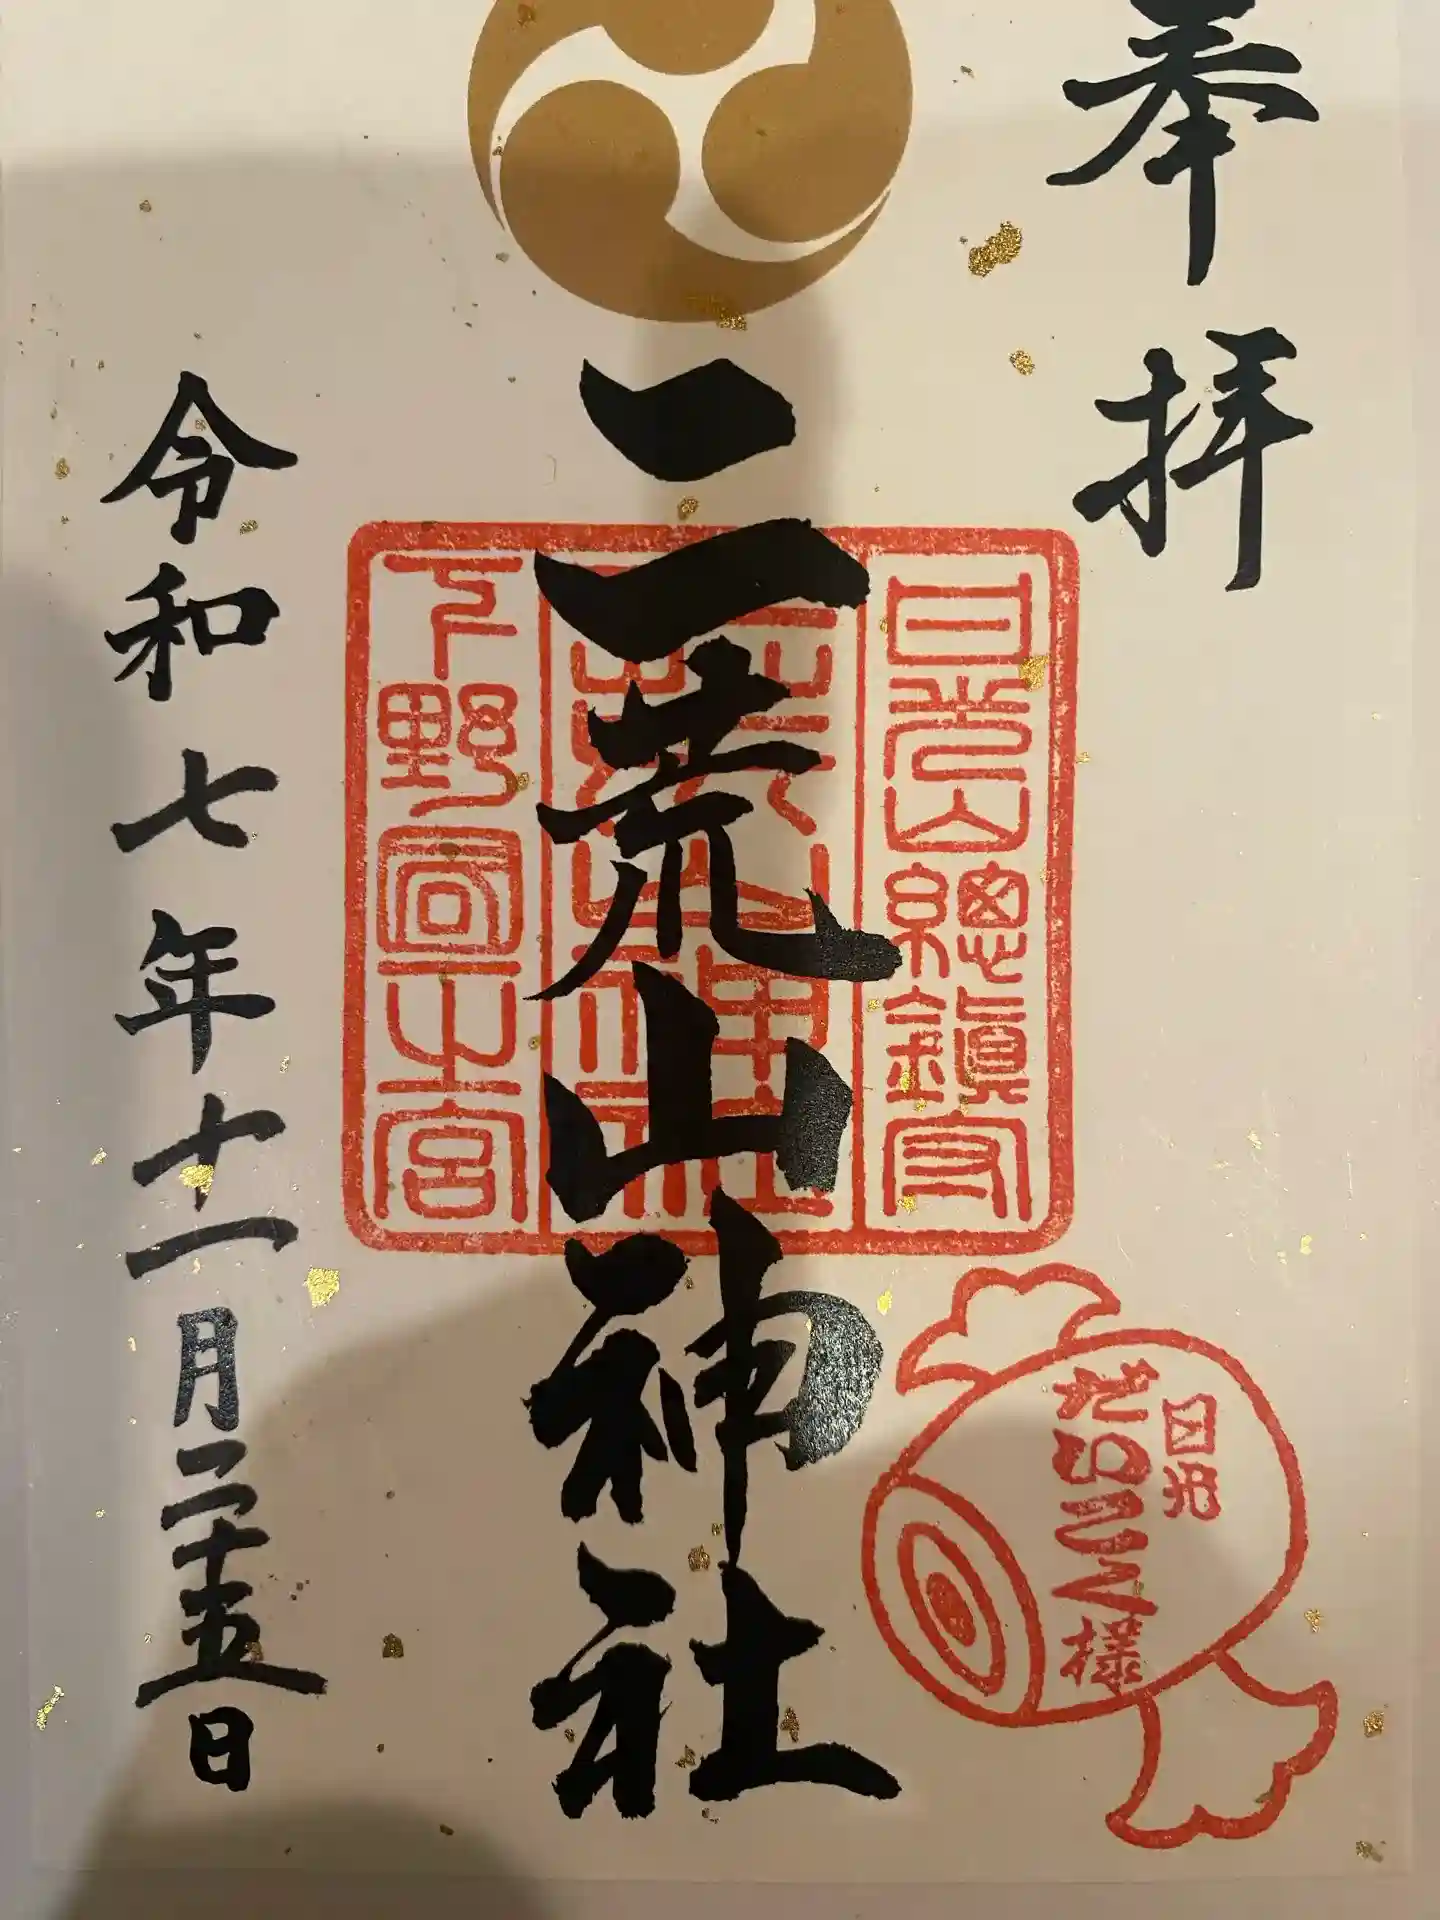 奉拝
日光山總鎮守
二荒山神社
下野國一之宮
日光
だいこく様
令和七年十一月二十五日